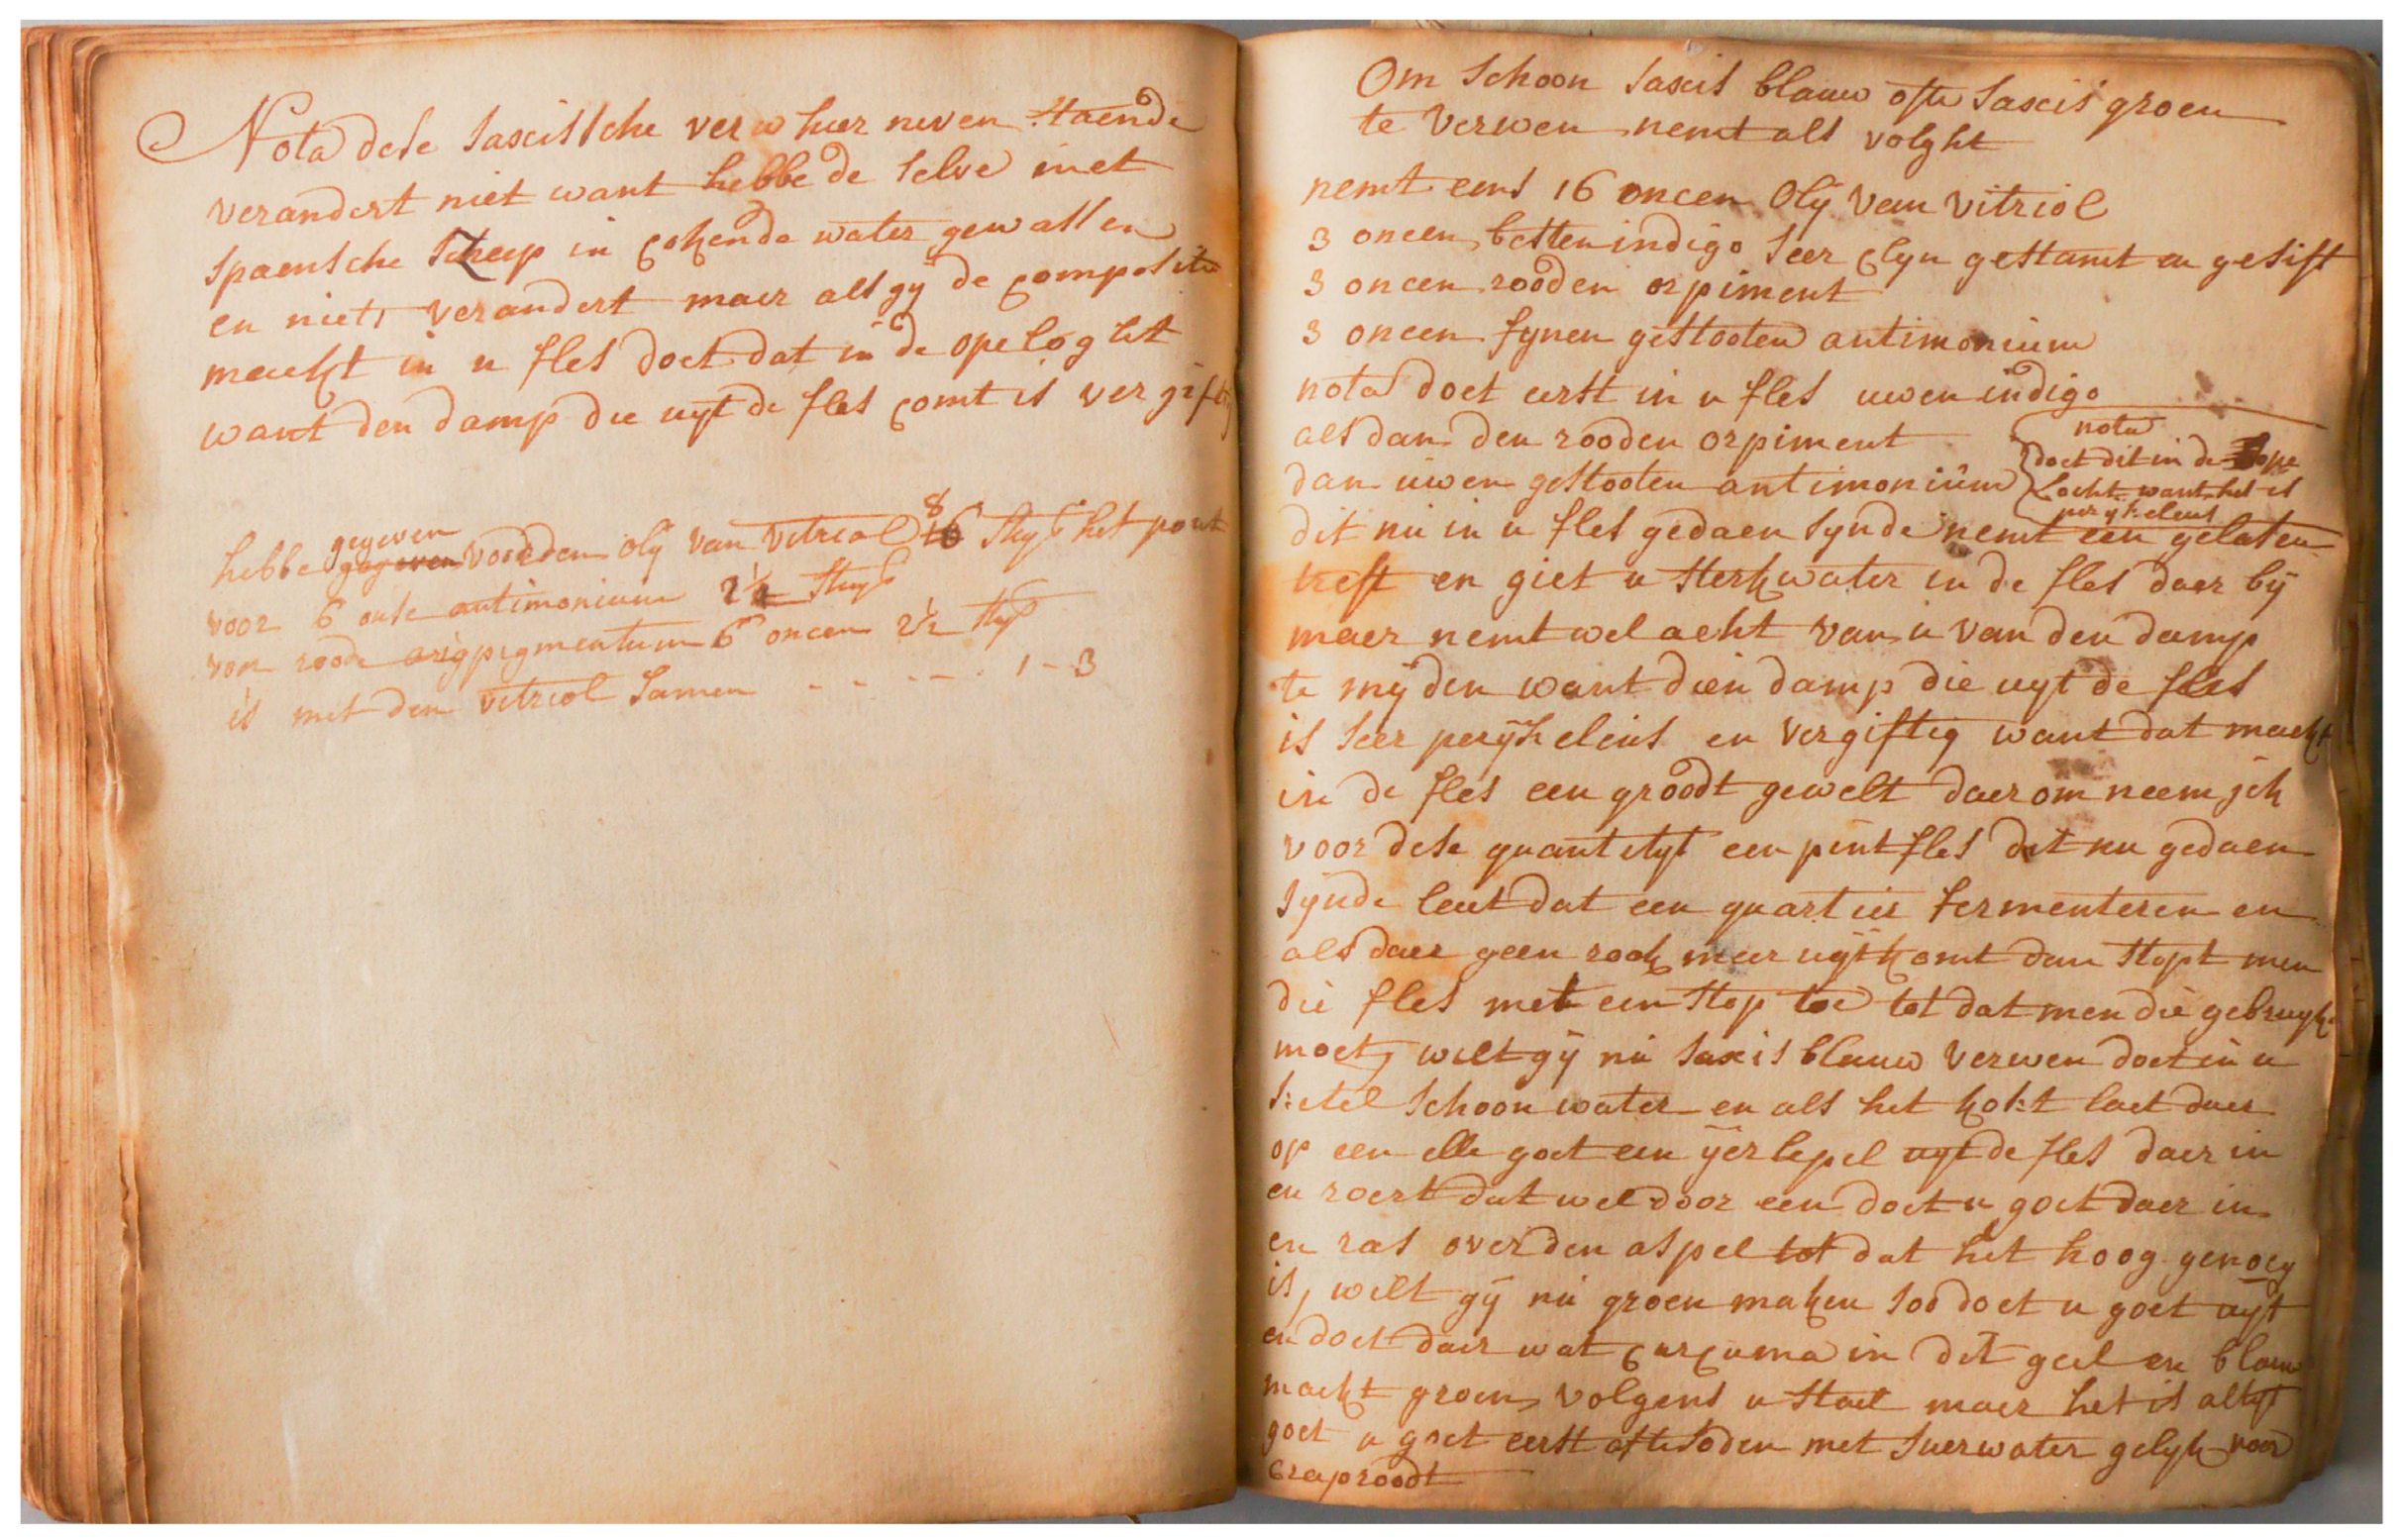 Nota dese saxcissche verw hier neven staende
verandert niet want hebbe de selve met
spaensche zeep in cokende water gewassen
en niets verandert maer als gy de compositie
maekt in u fles doet dat in de ope loght
want den damp die uyt de fles comt is vergiftig
gegeven 8
hebbe gegeven voor den olij van vitriol 16 stuys het pont
voor 6 onse antimonium 2½ stuys
voor roode arigpigmentum 6 oncen 2½ stuys
is met den vitriol samen - - - - . 1 - 3
Om schoon saxcis blauw ofte saxcis groen
te verwen nemt als volght
nemt eens 16 oncen olij van vitriol
3 oncen besten indigo seer clyn gestamt en gesift
3 oncen rooden orpiment
3 oncen fynen gestooten antimonium
nota doet eerst in u fles uwen indigo
als dan den rooden orpiment
dan uwen gestooten antimonium
nota
doet dit in de ope
locht want het is
perykeleus
dit nu in u fles gedaen synde nemt een gelasen
treft en giet u sterkwater in de fles daer bij
maer nemt wel acht van u van den damp
te myden want dien damp die uyt de fles
is seer perijkeleus en vergiftig want dat maekt
in de fles een groodt gewelt daerom neem jck
voor dese quantityt een pint fles dit nu gedaen
synde laet dat een quartier fermenteren en
als daer geen rook meer uyt komt dan stopt men
die fles met een stop toe tot dat men die gebruyk
moet, wilt gij nu saxis blauw verwen doet in u
ketel schoon water en als het kokt laet daer
op een elle goet een ijerlepel uyt de fles daer in
en roert dat wel door een doet u goet daer in
en ras over den aspel tot dat het hoog genoeg
is, wilt gij nu groen maken soo doet u goet uyt
en doet daer wat curcuma in dit geel en blauw
maekt groen volgens u stael maer het is altyt
goet u goet eerst afte soden met suerwater gelyk voor
craproodt